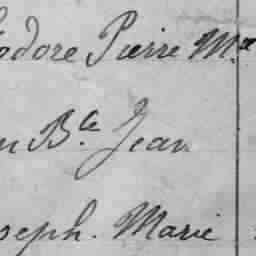 odore Pierre M.
n B.te Jean
seph. Marie